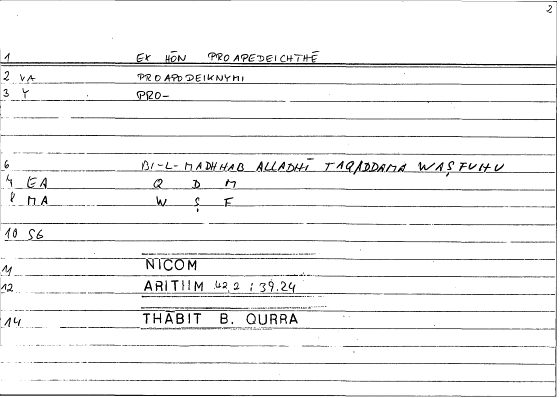 2
1 EK HŌN PROAPEDEICHTHĒ
2 VA PROAPODEIKNYMI
3 Y PRO-
6 BI-L-MADHHAB ALLADHĪ TAQADDAMA WAṢFUHU
4 EA Q D M
8 MA W Ṣ F
10 SG
11 NICOM
12 ARITHM 42,2 : 39.24
14 THĀBIT B. QURRA